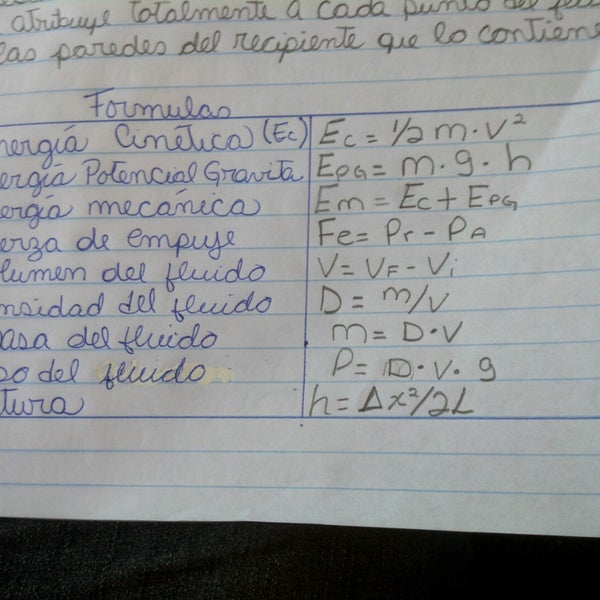 atribuye totalmente a cada punto del
las paredes del recipiente que lo contiene
Formulas
nergía Cinética (Ec) Ec = 1/2 m · v²
ergía Potencial Gravita EPG = m · g · h
ergía mecánica Em = Ec + EPG
erza de empuje Fe = Pr - PA
lumen del fluido V = VF - Vi
nsidad del fluido D = m/v
asa del fluido m = D · V
so del fluido P = D · V · g
tura h = Δx²/2L